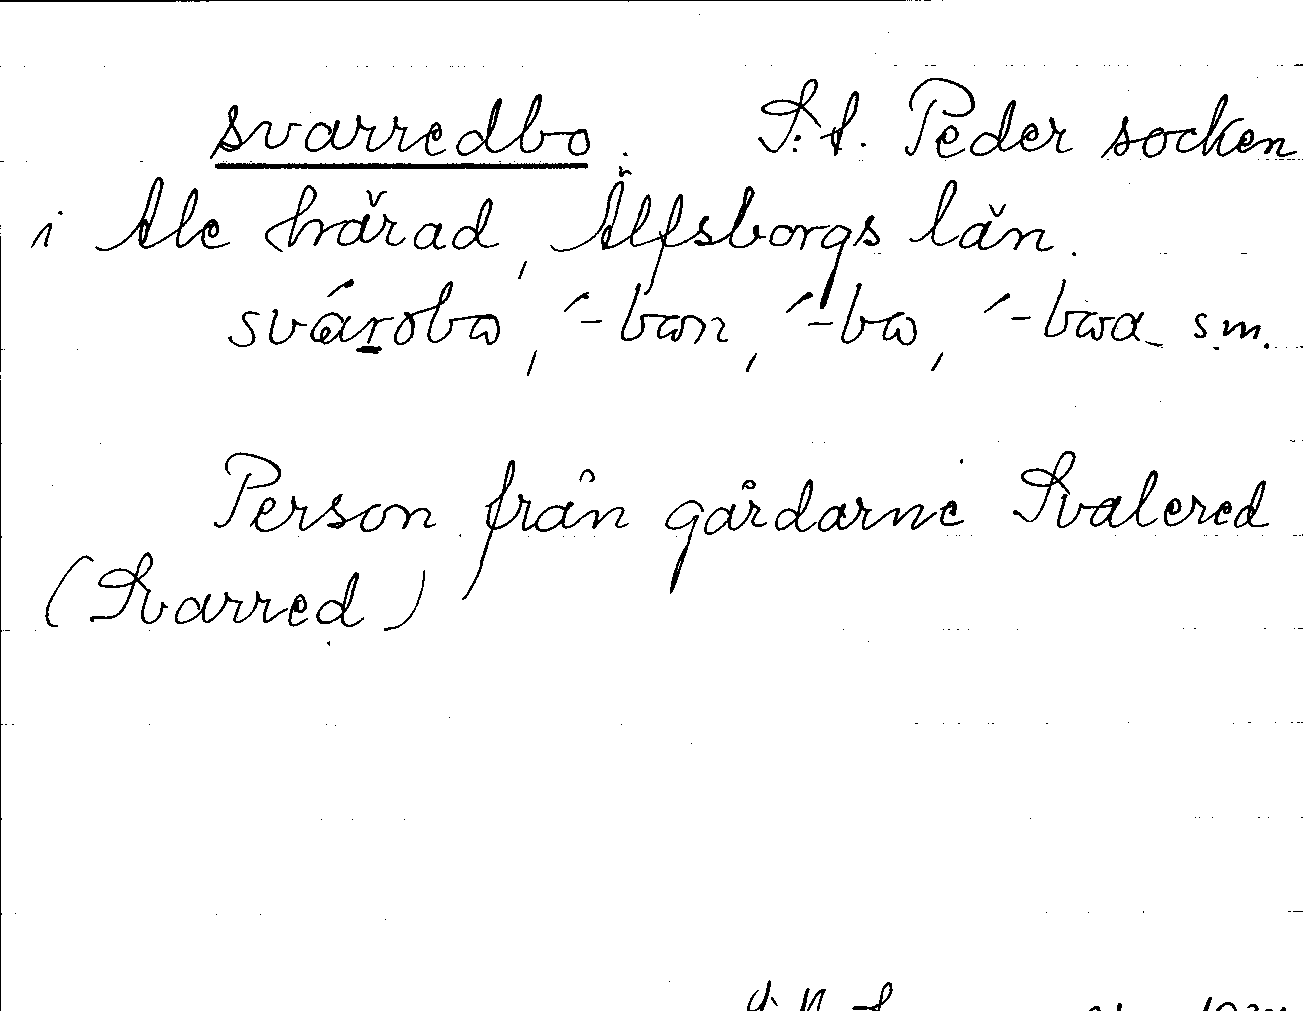 svarredbo. S:t. Peder socken
i Ale härad, Älfsborgs län.
svárəbω, ´-bωn, ´-bω, ´-bωa s.m.
Person från gårdarne Svalered
(Svarred)